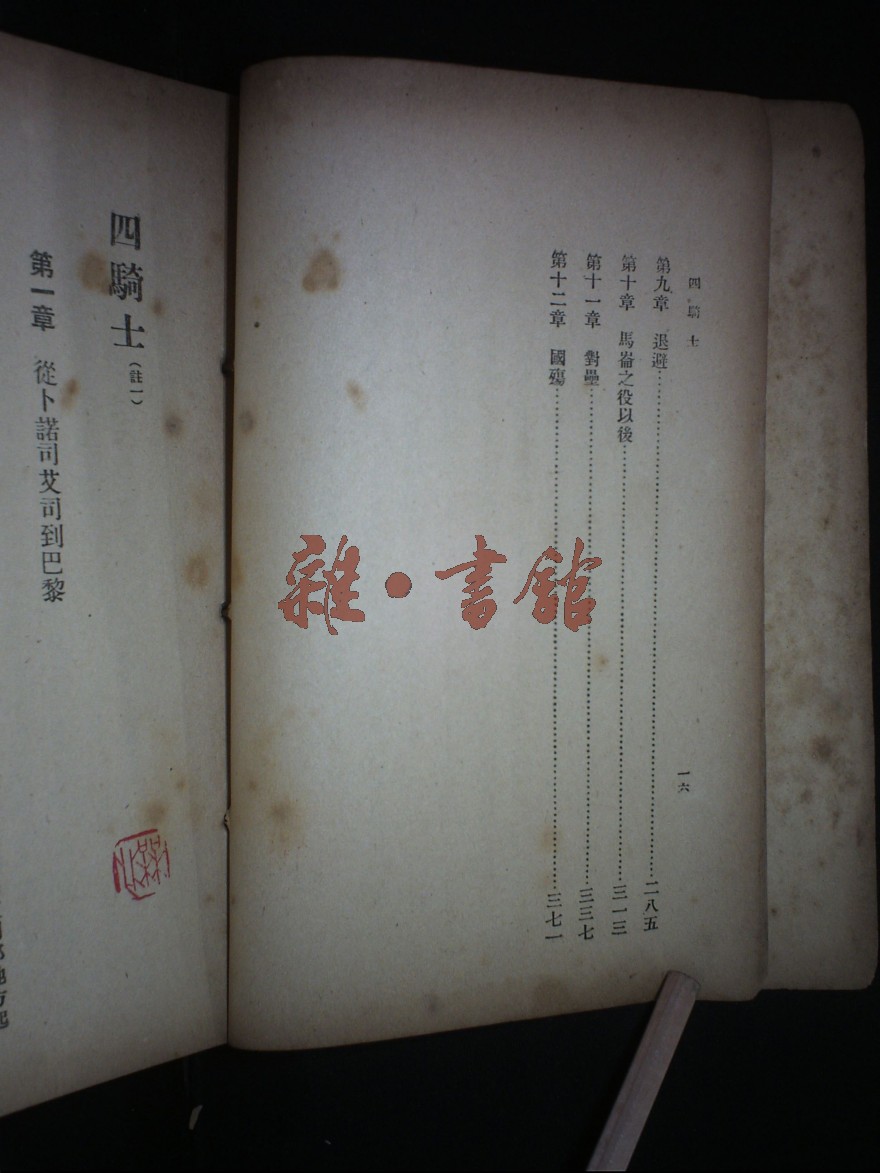 四騎士
一六
第九章 退避……二八五
第十章 馬崙之役以後……三一三
第十一章 對壘……三三七
第十二章 國殤……三七一
四騎士（註一）
第一章 從卜諾司艾司到巴黎
雜·書館